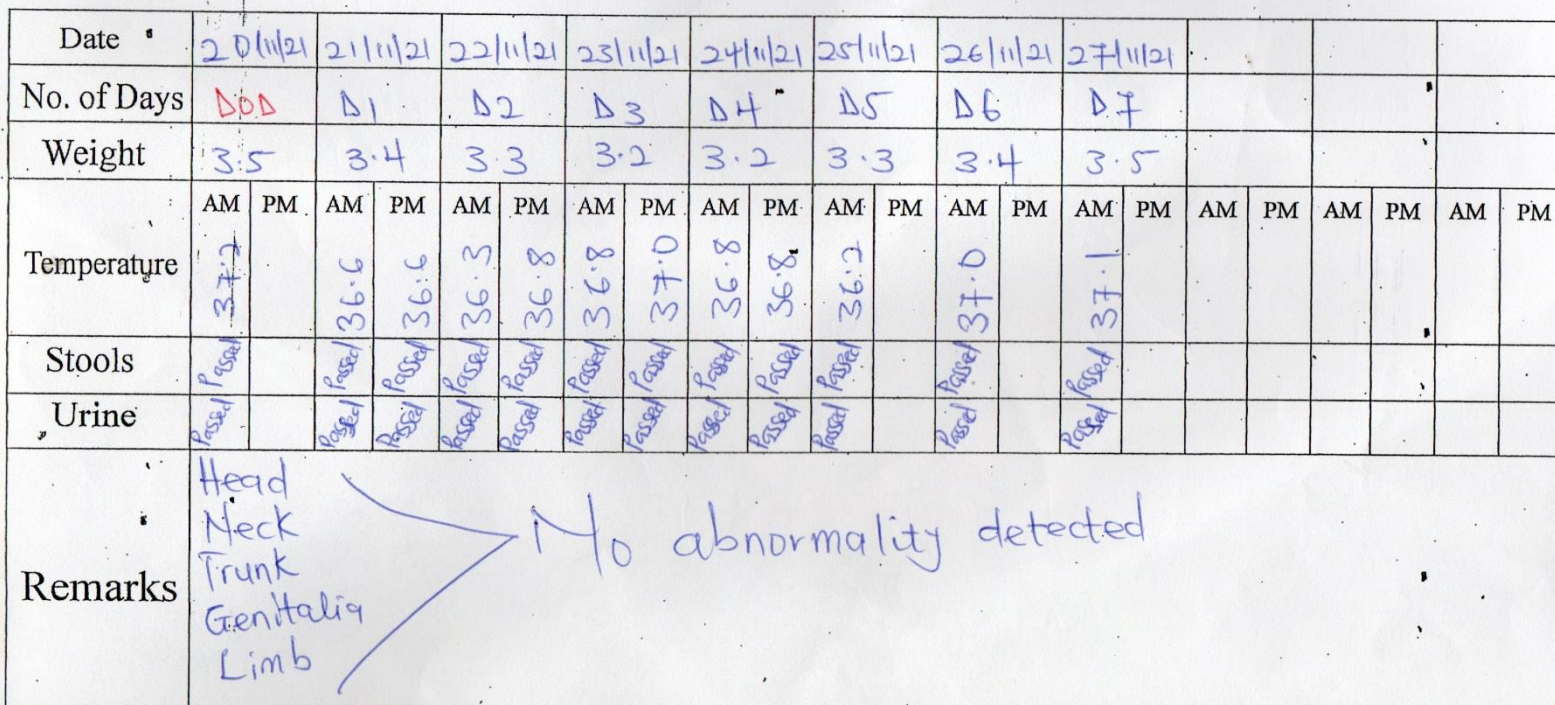 Date 20/11/21 21/11/21 22/11/21 23/11/21 24/11/21 25/11/21 26/11/21 27/11/21
No. of Days DOD D1 D2 D3 D4 D5 D6 D7
Weight 3.5 3.4 3.3 3.2 3.2 3.3 3.4 3.5
AM PM AM PM AM PM AM PM AM PM AM PM AM PM AM PM AM PM AM PM AM PM
Temperature 37.2 36.6 36.6 36.3 36.8 36.8 37.0 36.8 36.8 36.2 37.0 37.1
Stools Passed Passed Passed Passed Passed Passed Passed Passed Passed Passed Passed Passed
Urine Passed Passed Passed Passed Passed Passed Passed Passed Passed Passed Passed Passed
Remarks
Head
Neck
Trunk
Genitalia
Limb
No abnormality detected